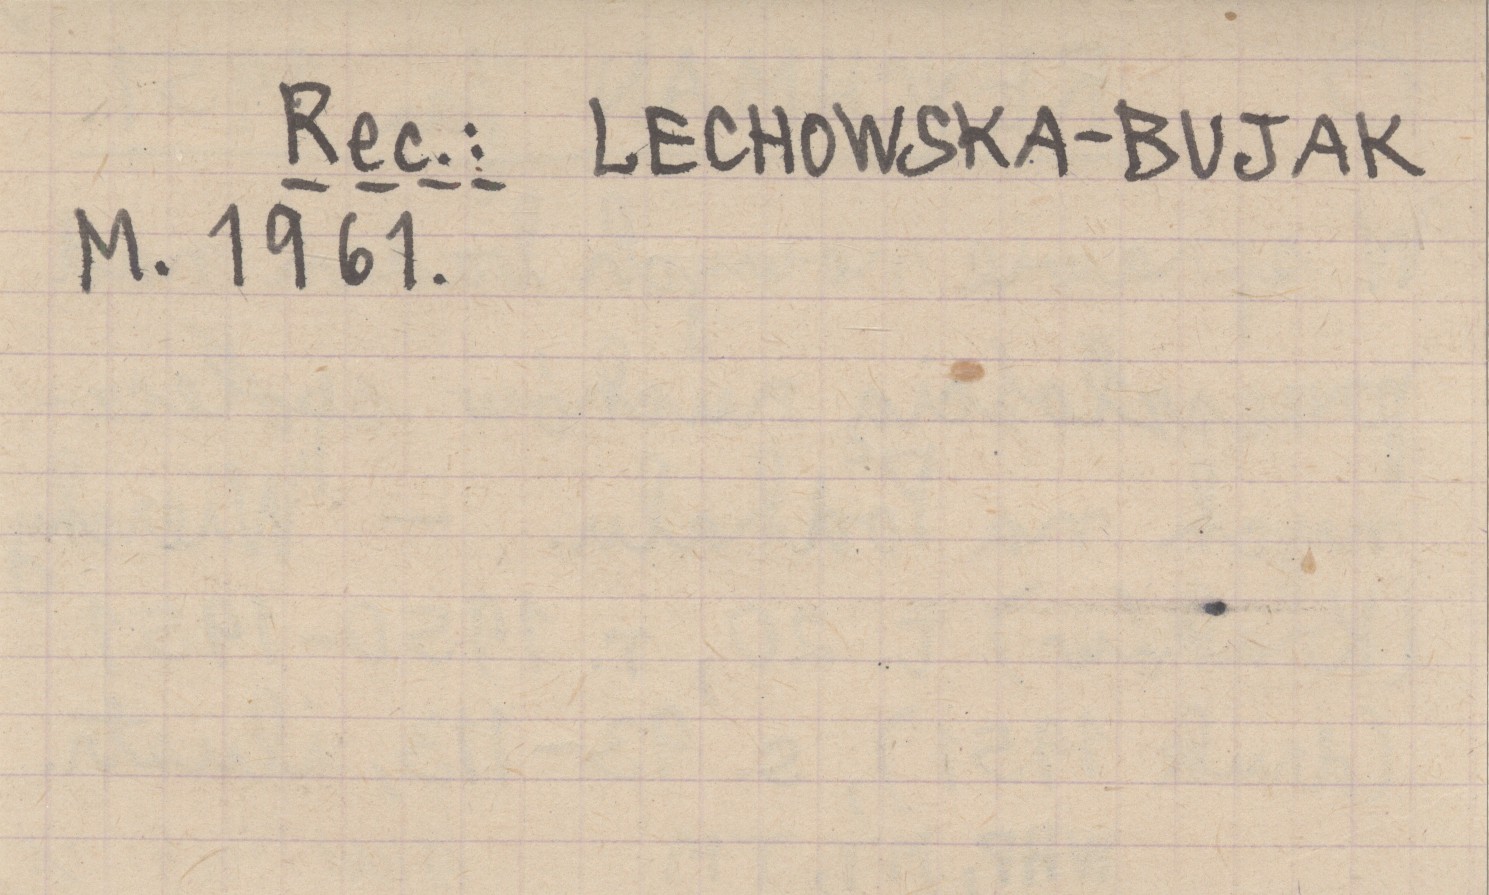 Rec.: LECHOWSKA-BUJAK
M. 1961.